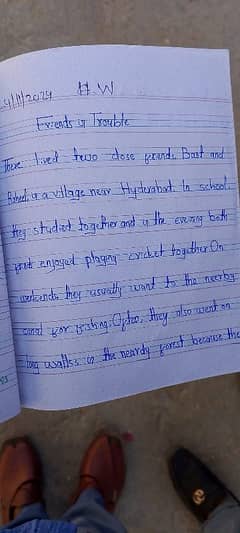 4/11/2024 H.W
Friends in Trouble
There lived two close friends Bast and
in a village near Hyderabad. In school,
they studied together and in the evening both
enjoyed playing cricket together. On
weekends they usually want to the nearby
canal for fishing. Often, they also went on
long walks in the neardy forest because the